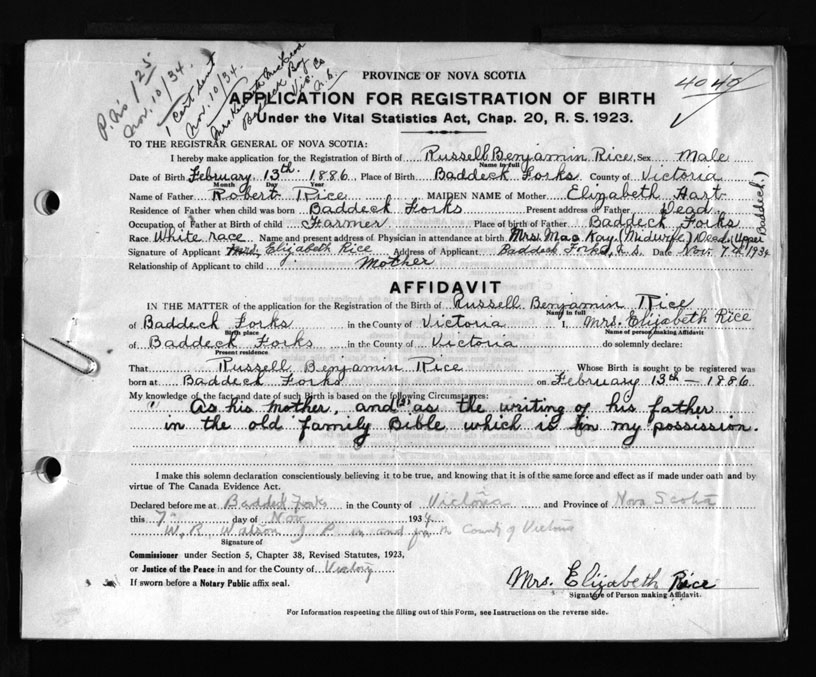 P. No 1.25
Nov. 10/34.
1 Cert. sent
Nov. 10/34.
Baddeck Bay
Vic. Co
N.S.
4040
PROVINCE OF NOVA SCOTIA
APPLICATION FOR REGISTRATION OF BIRTH
Under the Vital Statistics Act, Chap. 20, R. S. 1923.
TO THE REGISTRAR GENERAL OF NOVA SCOTIA:
I hereby make application for the Registration of Birth of Russell Benjamin Rice, Sex Male
Name in full
Date of Birth February 13th 1886 Place of Birth Baddeck Forks County of Victoria
Month Day Year
Name of Father Robert Rice MAIDEN NAME of Mother Elizabeth Hart
Residence of Father when child was born Baddeck Forks Present address of Father Dead
Occupation of Father at Birth of child Farmer Place of birth of Father Baddeck Forks
Race White race Name and present address of Physician in attendance at birth Mrs. Mac Kay (Midwife) Dead (Upper Baddeck.)
Signature of Applicant Mrs. Elizabeth Rice Address of Applicant Baddeck Forks, N.S. Date Nov. 7th 1934
Relationship of Applicant to child Mother
AFFIDAVIT
IN THE MATTER of the application for the Registration of the Birth of Russell Benjamin Rice
Name in full
of Baddeck Forks in the County of Victoria I, Mrs. Elizabeth Rice
Birth place Name of person making Affidavit
of Baddeck Forks in the County of Victoria do solemnly declare:
Present residence
That Russell Benjamin Rice Whose Birth is sought to be registered was
born at Baddeck Forks on February 13th - 1886
My knowledge of the fact and date of such Birth is based on the following Circumstances:
(1) As his mother, and (2) as the writing of his father
in the old family Bible which is in my possission.
I make this solemn declaration conscientiously believing it to be true, and knowing that it is of the same force and effect as if made under oath and by
virtue of The Canada Evidence Act.
Declared before me at Baddeck Forks in the County of Victoria and Province of Nova Scotia
this 7 day of Nov 1934
W. R. Watson J. P. in and for the County of Victoria
Signature of
Commissioner under Section 5, Chapter 38, Revised Statutes, 1923,
or Justice of the Peace in and for the County of Victoria
If sworn before a Notary Public affix seal.
Mrs. Elizabeth Rice
Signature of Person making Affidavit.
For Information respecting the filling out of this Form, see Instructions on the reverse side.